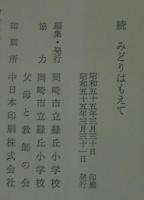 続 みどりはもえて
昭和五十五年三月三十日 印刷
昭和五十五年三月三十一日 発行
編集・発行 岡崎市立緑丘小学校
協力 岡崎市立緑丘小学校
父母と教師の会
印刷所 中日本印刷株式会社